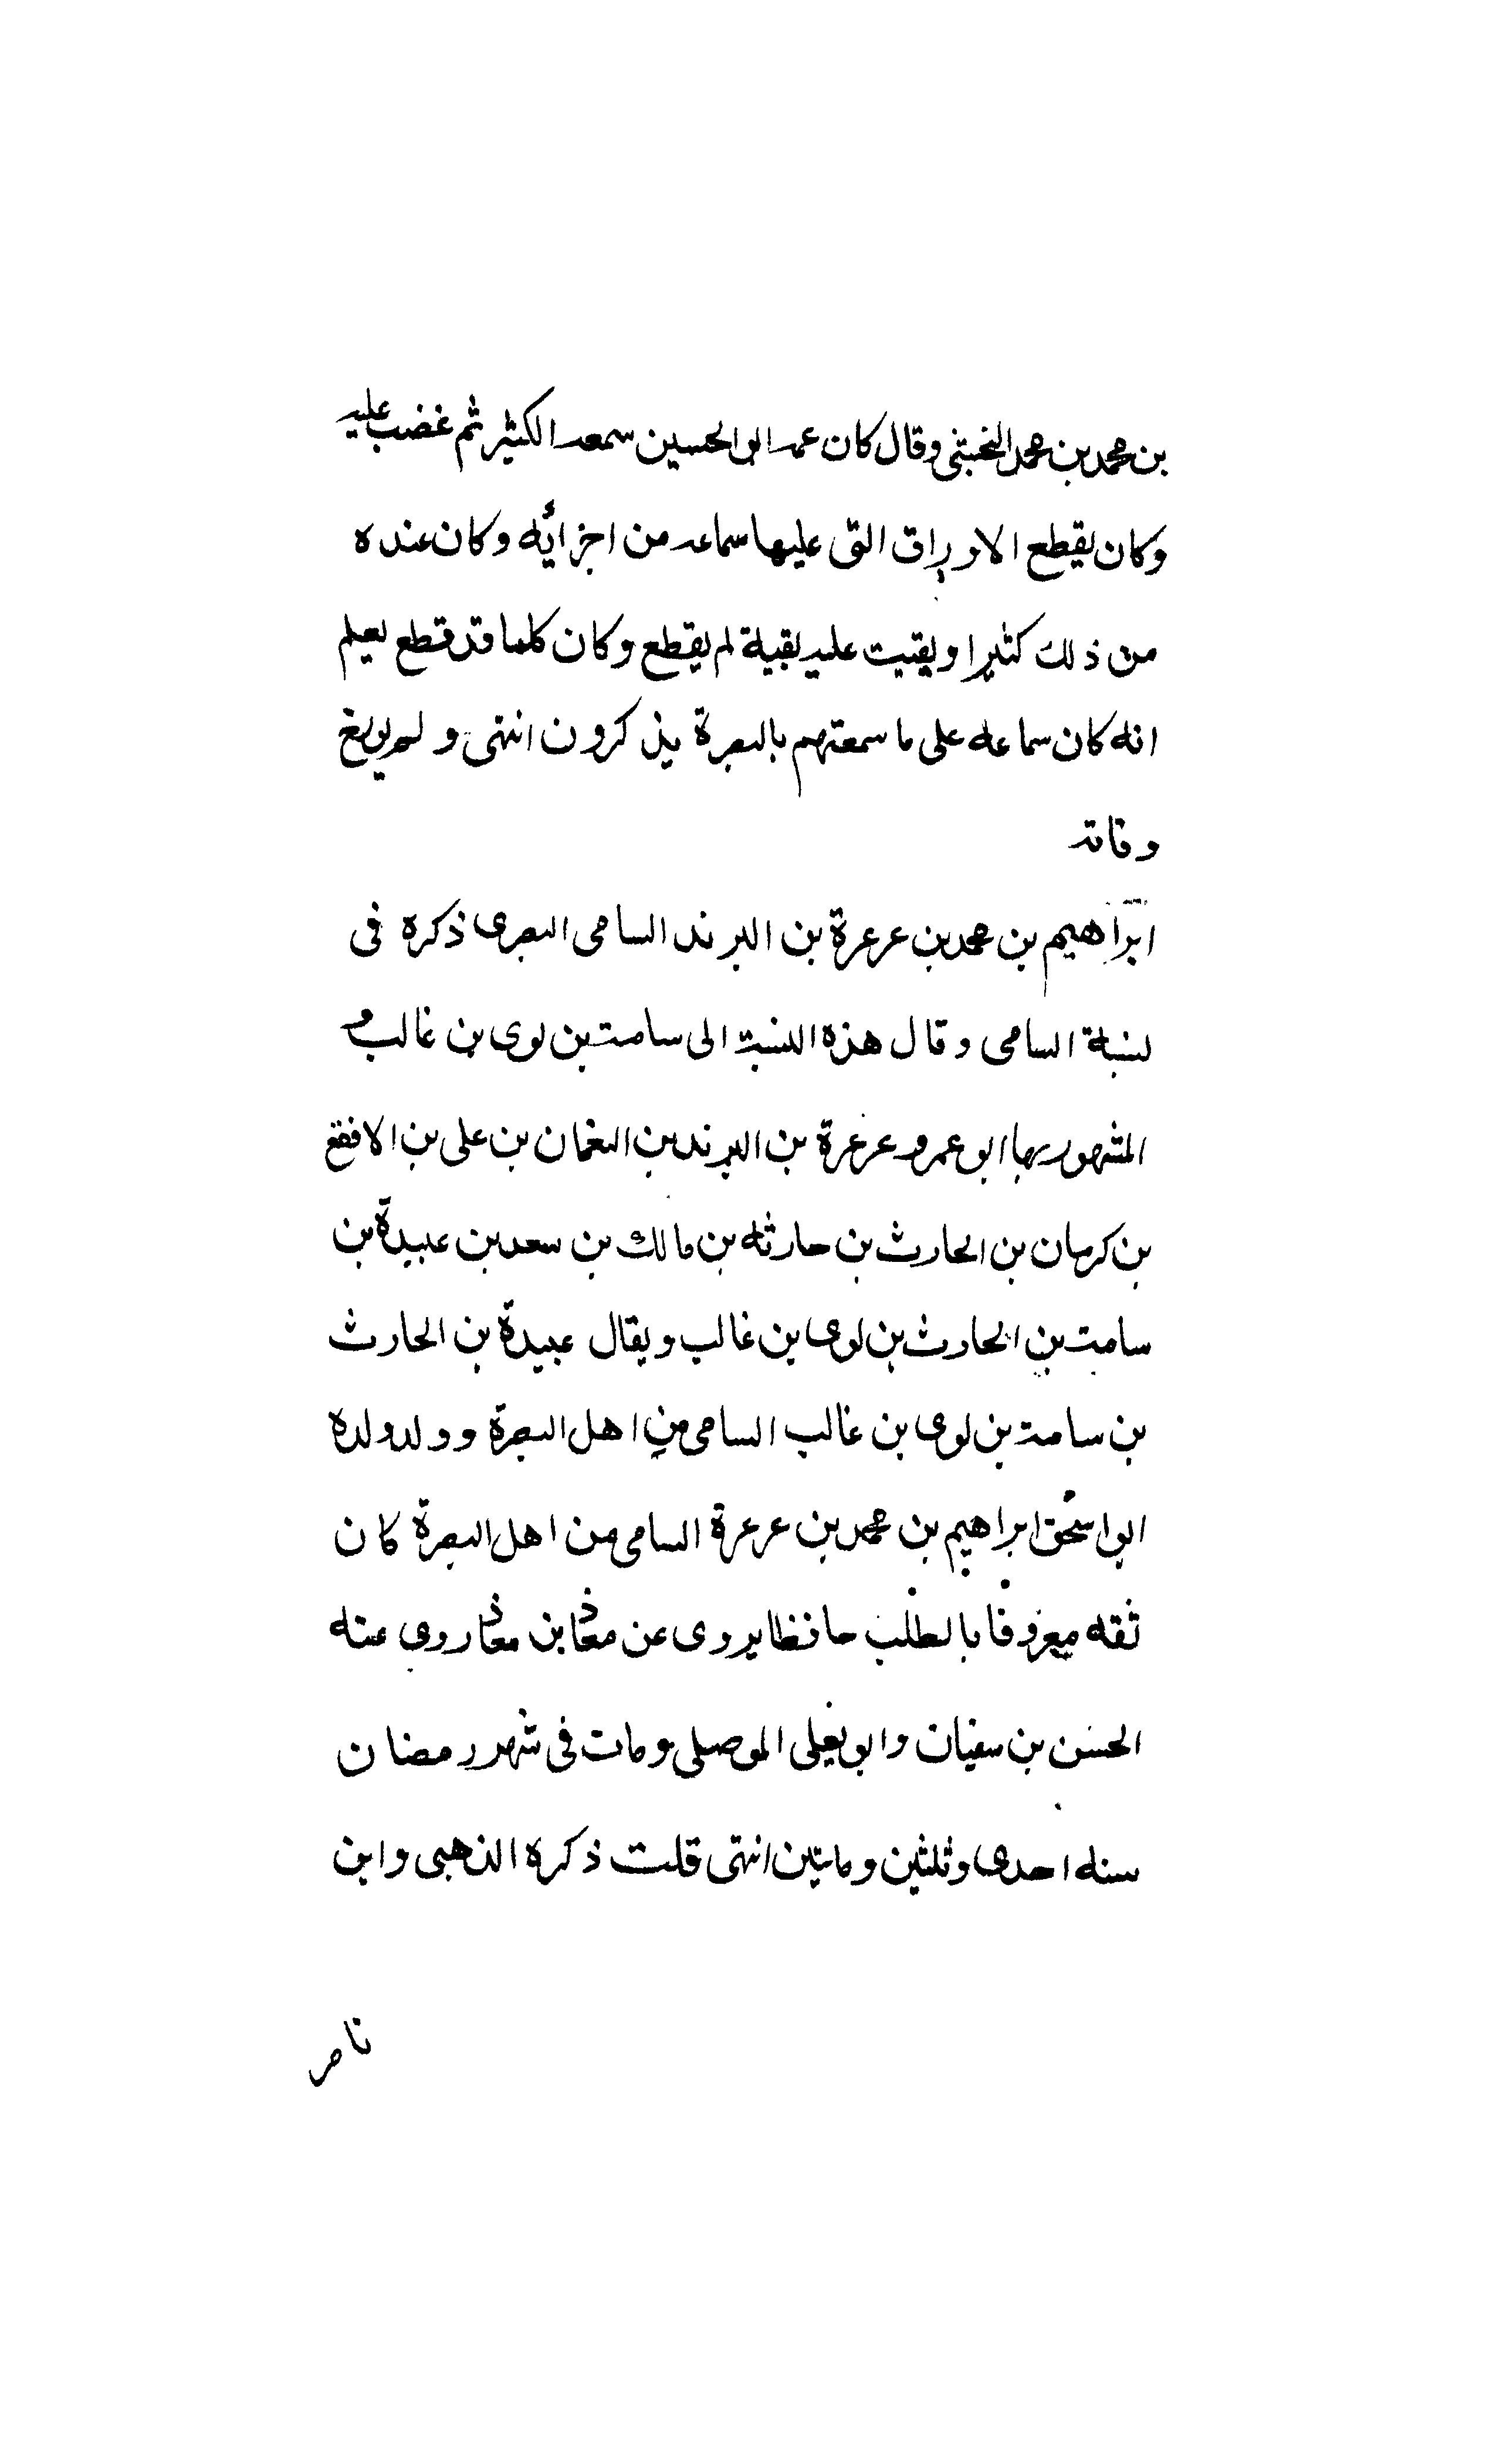 بن محمد بن محمد النخبتى وقال كان عمه ابو الحسين سمعه الكثير ثم غضب عليه
وكان يقطع الاوراق التى عليها سماعه من اجزائه وكان عنده
من ذلك كثيرا وبقيت عليه بقية لم يقطع وكان كلما قد قطع يعلم
انه كان سماعه على ما سمعتهم بالبصرة يذكرون انتهى ولم يورخ
وفاته
ابراهيم بن محمد بن عرعرة بن البرند السامى البصرى ذكره فى
نسبة السامى وقال هذه النسبة الى سامة بن لوى بن غالب و
المشهور بها ابو عمرو عرعرة بن البرند بن النعمان بن على بن الافقع
بن كرمان بن الحارث بن حارثه بن مالك بن سعد بن عبيدة بن
سامة بن الحارث بن لوى بن غالب ويقال عبيدة بن الحارث
بن سامة بن لوى بن غالب السامى من اهل البصرة وولد ولده
ابو اسحق ابراهيم بن محمد بن عرعرة السامى من اهل البصرة كان
ثقه معروفا بالطلب حافظا يروى عن معاذ بن معاذ روى عنه
الحسن بن سفيان وابو يعلى الموصلى ومات فى شهر رمضان
سنه احدى وثلثين ومايتين انتهى قلت ذكره الذهبى وابن